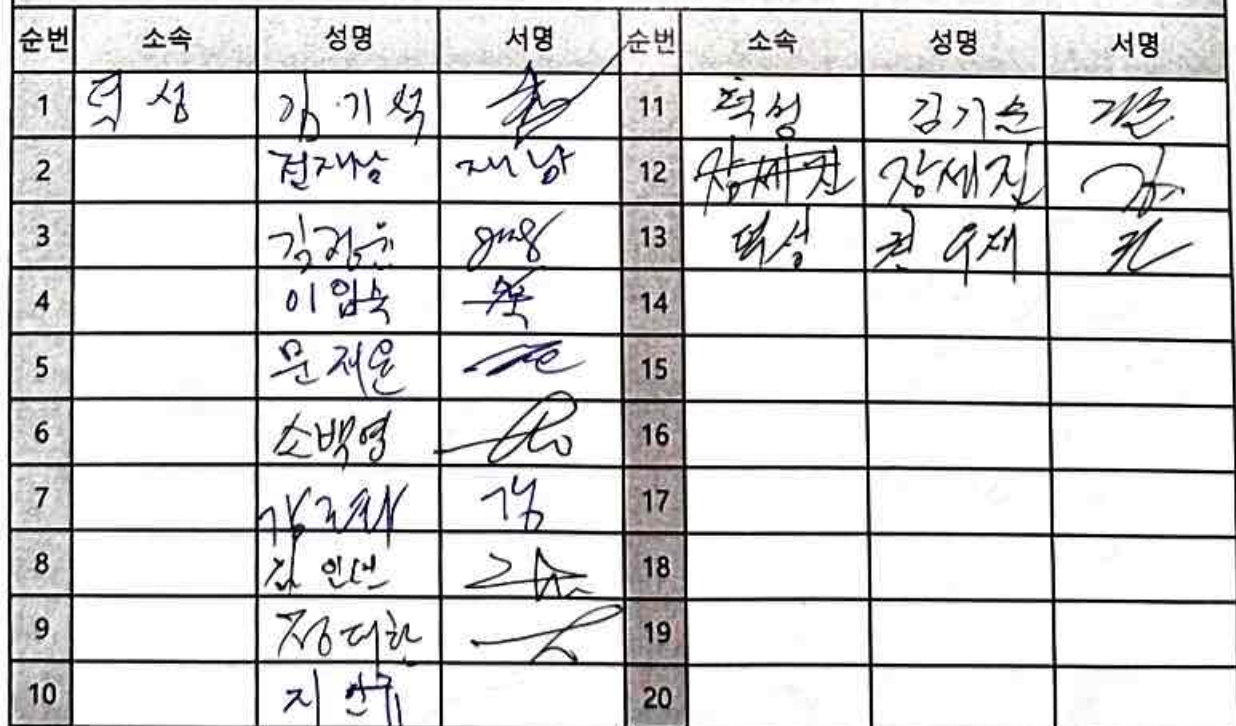 순번 소속 성명 서명 순번 소속 성명 서명
1 덕성 김기석 11 덕성 김기순
2 전재남 재남 12 장세진 장세진
3 김정윤 13 덕성 권우재 권
4 이임숙 14
5 문재은 15
6 소백영 16
7 강 17
8 18
9 정대한 19
10 지 20